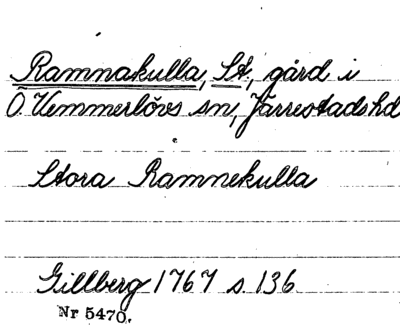 Ramnakulla, St., gård i
Ö. Vemmerlövs sn, Järrestads hd
Stora Ramnekulla
Gillberg 1767 s 136
Nr 5470.